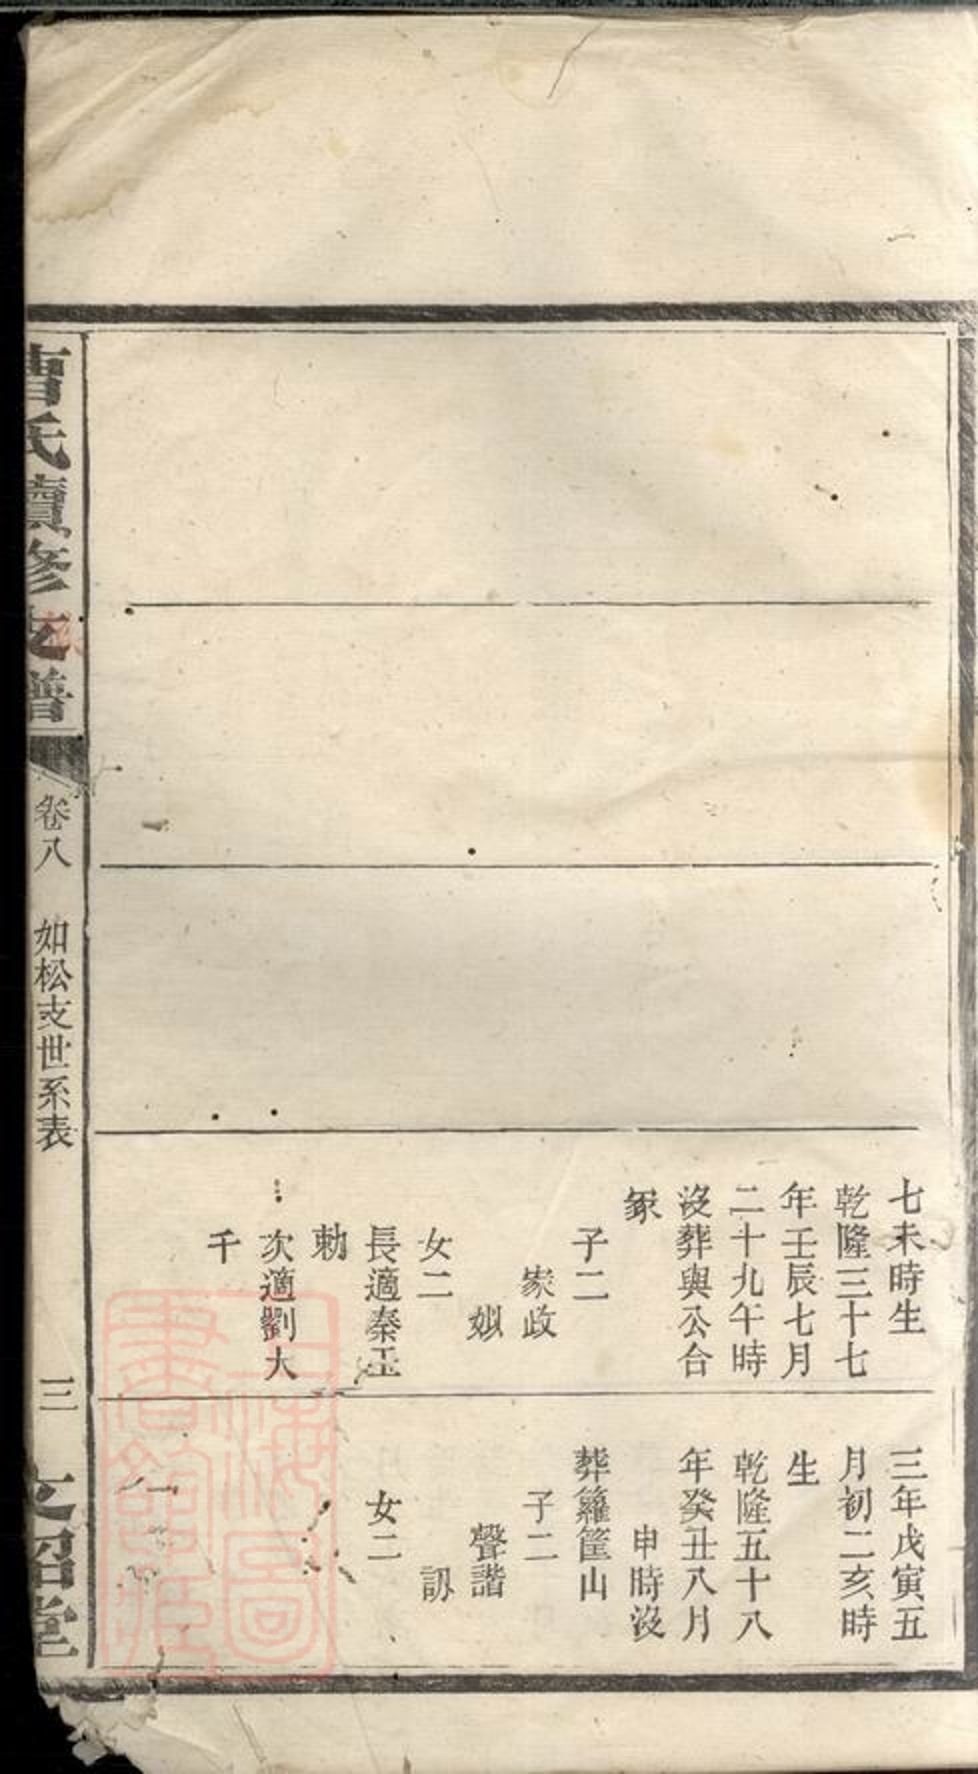 七未時生
乾隆三十七
年壬辰七月
二十九午時
沒葬與公合
冢
子二
家政
姒
女二
長適秦玉
勅
次適劉大
千
三年戊寅五
月初二亥時
生
乾隆五十八
年癸丑八月
申時沒
葬籮筐山
子二
聲諧
訒
女二
曹氏續修支譜
卷八
如松支世系表
三
文昭堂
上海圖
書館藏